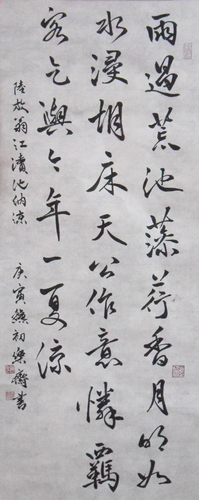 雨過荒池藻荇香月明如
水浸胡床天公作意憐羈
客乞與今年一夏涼
陸放翁江瀆池納涼
庚寅 初樂 書